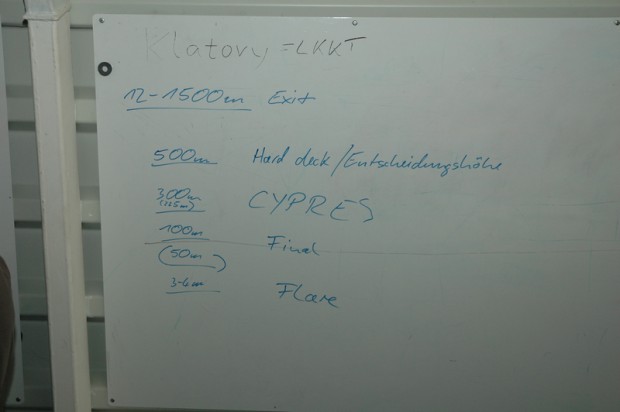 Klatovy = LKKT
12-1500m Exit
500m Hard deck/Entscheidungshöhe
300m CYPRES
(225m)
100m Final
(50m)
3-4m Flare